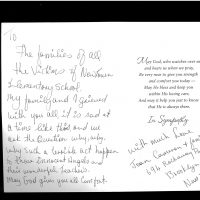 TO
The families of all
the victims of Newtown
Elementary School.
My family and I grieved
with you all it is sad at
a time like this and we
ask the question why, why,
why such a terrible act happen
to these innocent angels and
their wonderful teachers.
May God gives you all comfort.
May God, who watches over us
and hears us when we pray,
Be very near to give you strength
and comfort you today —
May He bless and keep you
within His loving care,
And may it help you just to know
that He is always there.
In Sympathy
With much love
Jean Cameron & family
Brooklyn